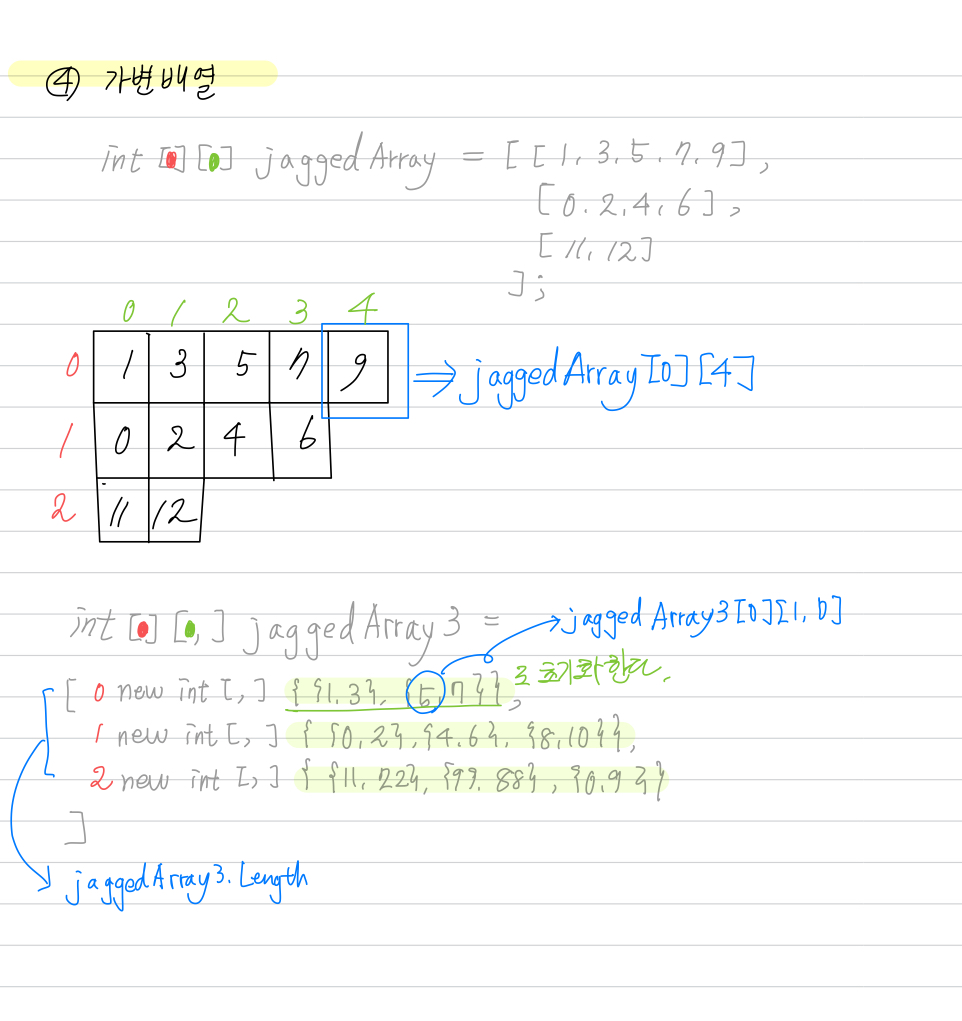 ④ 가변배열
int [ ] [ ] jaggedArray = [ [ 1, 3, 5, 7, 9 ] ,
[ 0, 2, 4, 6 ] ,
[ 11, 12 ]
] ;
0 1 2 3 4
0 1 3 5 7 9 ⇒ jaggedArray[0][4]
1 0 2 4 6
2 11 12
int [ ] [ , ] jaggedArray3 = jaggedArray3[0][1, 0]
[ 0 new int [ , ] { {1, 3}, {5, 7} } , 로 초기화한다.
1 new int [ , ] { {0, 2}, {4, 6}, {8, 10} },
2 new int [ , ] { {11, 22}, {99, 88} , {0, 9} }
]
jaggedArray3.Length